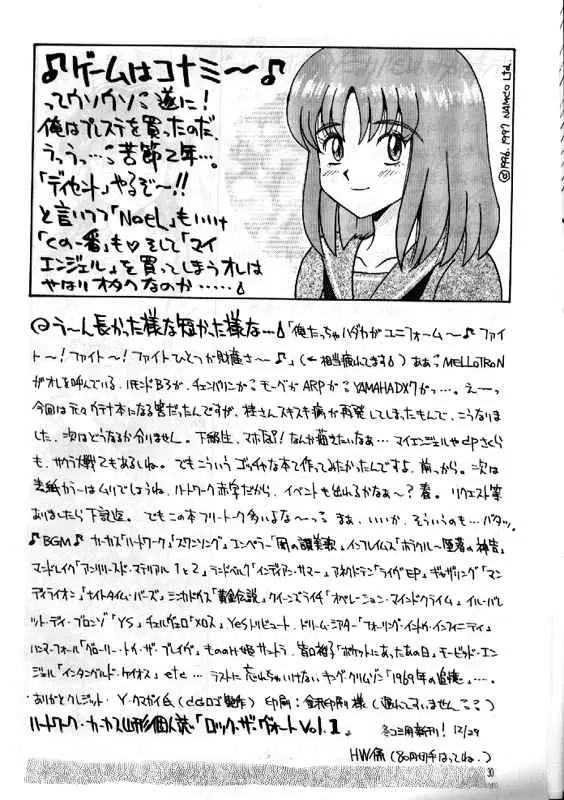 ♪ゲームはコナミ〜♪
ってウソウソ 遂に!
俺はプレステを買ったのだ
うっうっ… 苦節2年…。
「ディセント」やるぞ〜!!
と言いつつ「NoëL」もいいけ
「くの一番」も♡そして「マイ
エンジェル」を買ってしまうオレは
やはりオタクなのか……
©1996, 1997 NAMCO Ltd.
@う〜ん長かった様な短かった様な…「俺たっちゃハダカがユニフォーム〜♪ファイ
ト〜!ファイト〜!ファイトひとつが財産さ〜♪」(←相当疲れてます)ああ MELLOTRON
がオレを呼んでいる。ハモンドB3か、チェンバリンか モーグか ARPか YAMAHA DX7かっ…。えーっ
今回は元々グラナ本になる筈だったんですが、桂さんスキスキ病が再発してしまったもんで、こうなりま
した、次はどうなるか分りません。下級生、マホ なんか描きたいなぁ… マイエンジェルやepさくら
も、サクラ大戦てもあるしね。でもこういうゴッチャな本で作ってみたかったんですよ、前っから。次は
表紙カラーはムリでしょうね、ハートワーク赤字だから、イベントも出れるかなぁ〜?春。リクエスト等
ありましたら下記迄。でもこの本フリートーク多いよな〜っ まぁ、いいか、そういうのも…バタッ。
♪BGM♪カーカス「ハートワーク」「スワンソング」エンペラー「闇の讃美歌」インフレイムス「ホラクル〜 」
マンドレイク「アンリリースド・マテリアル1と2」ランドベルク「インディアン・サマー」アネクドテン「ライヴEP」ギャザリング「マン
ディライオン」「ナイトタイム・バーズ」ミンカドゥス「黄金伝説」クイーンズライチ「オペレーション・マインドクライム」イル・バレ
ット・ディ・ブロンゾ「YS」チェルヴェロ「メロス」Yesトリビュート ドリーム・シアター「フォーリング・イントゥ・インフィニティ」
ハンマーフォール「グローリー・トゥ・ザ・ブレイヴ」もののけ姫サントラ 谷口裕子「ポケットにあったあの日」モービッド・エン
ジェル「インタングルド・ケイオス」etc… ラストに忘れちゃいけないキング・クリムゾン「1969年の追憶」…。
ありがとクレジット・Y・クマガイ氏( ロゴ製作)印刷: 印刷様(遅れてすいません)
ハートワーク・カーカス山形個人誌「ロック・ザ・ヴォート Vol.1」冬コミ用新刊! 12/29
HW係(80円切手はってね。)
30